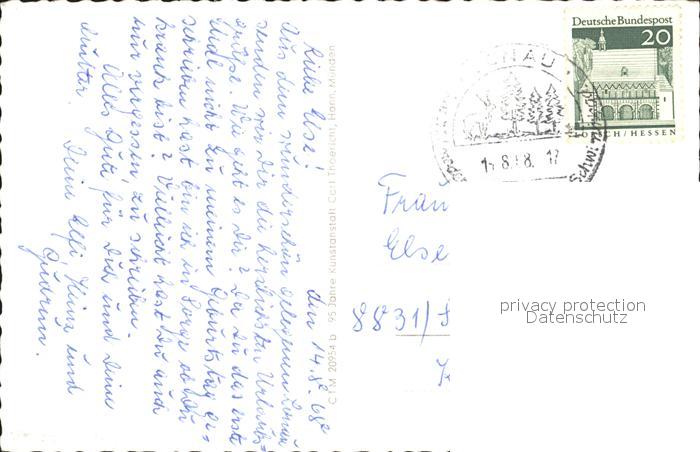 den 14.8.68
Liebe Else!
Aus dem wunderschön gelegenen
senden wir Dir die herzlichsten Urlaubs-
grüße. Wie geht es Dir? Da Du das erste
mal nicht zu meinem Geburtstag ge-
schrieben hast bin ich in Sorge ob Du
krank bist? Vielleicht hast Du auch
nur vergessen zu schreiben.
Alles Gute für Dich und Deine
Mutter. Deine Elfi, Heinz und
Gudrun.
C M 20954 b 95 Jahre Kunstanstalt Carl Thoericht, Hann. Münden
Deutsche Bundespost
20
LORSCH/HESSEN
NAU
14.8.68.17
Frau
Else
8831/
privacy protection
Datenschutz